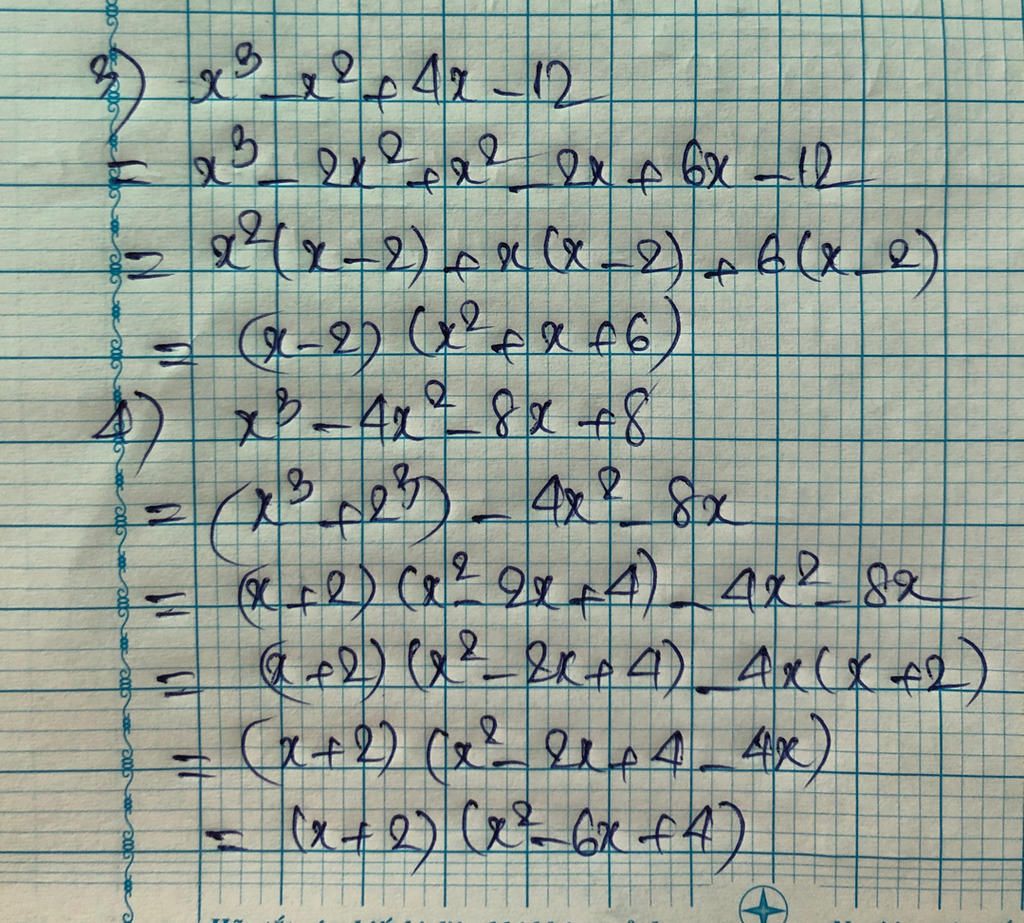 3) x³ - x² + 4x - 12
= x³ - 2x² + x² - 2x + 6x - 12
= x²(x - 2) + x(x - 2) + 6(x - 2)
= (x - 2) (x² + x + 6)
4) x³ - 4x² - 8x + 8
= (x³ + 2³) - 4x² - 8x
= (x + 2) (x² - 2x + 4) - 4x² - 8x
= (x + 2) (x² - 2x + 4) - 4x(x + 2)
= (x + 2) (x² - 2x + 4 - 4x)
= (x + 2) (x² - 6x + 4)